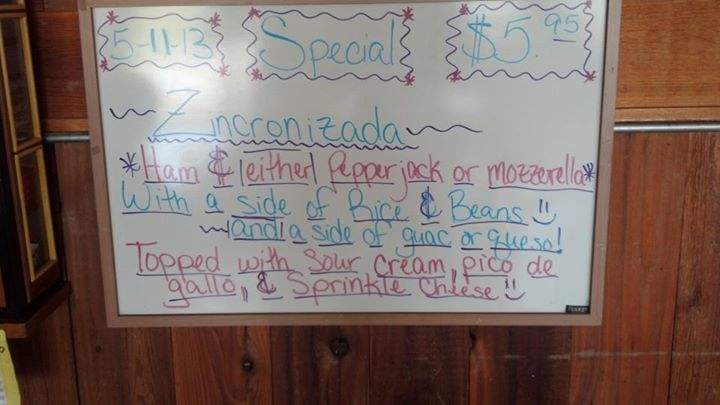 5-11-13 Special $5.95
Zincronizada
*Ham & |either| Pepper jack or mozzerella*
With a side of Rice & Beans
|and| a side of guac or queso!
Topped with Sour Cream, pico de
gallo, & Sprinkle Cheese